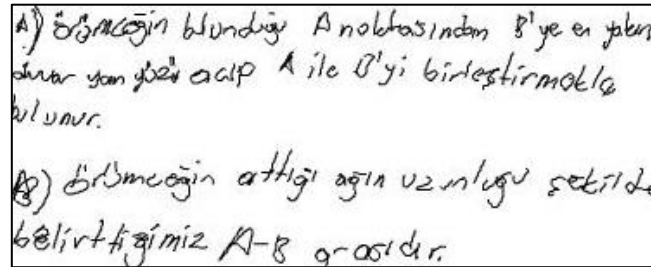 A) örümceğin blunduğu A noktasından B'ye en yakın
duvar yan yüzü açıp A ile B'yi birleştirmekle
bulunur.
B) örümceğin attığı ağın uzunluğu şekilde
belirttiğimiz A-B arasıdır.